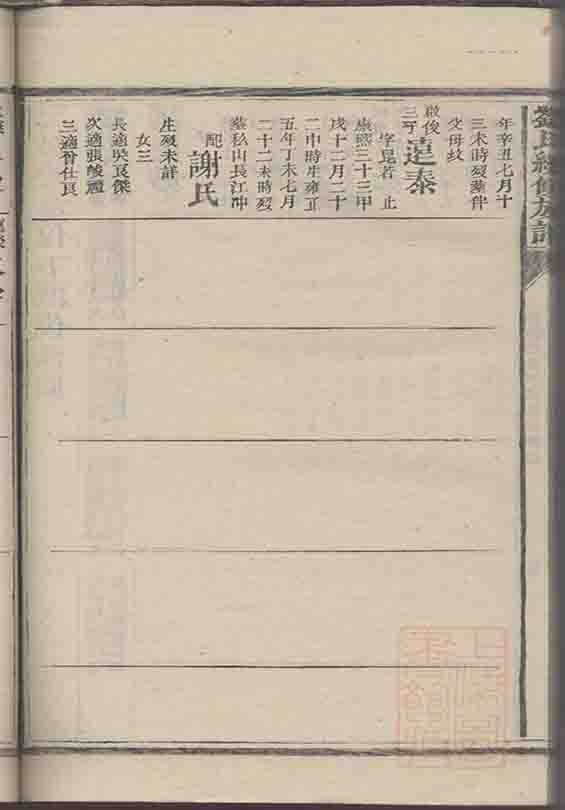 劉氏續修族譜
年辛丑七月十
三未時歿葬伴
父母墳
啟俊
三子
遠泰
字昆若 止
康熙三十三甲
戌十二月二十
二申時生雍正
五年丁未七月
二十二未時歿
墓私山長江冲
配
謝氏
生歿未詳
女三
長適吳良傑
次適張
三適曾仕良